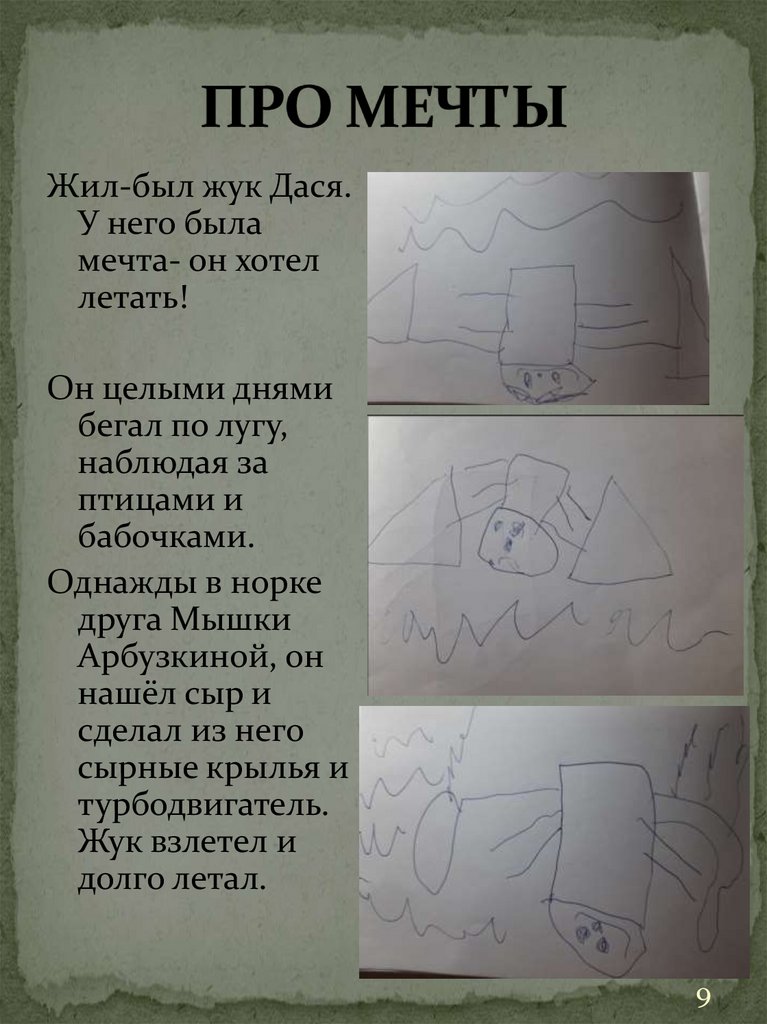 ПРО МЕЧТЫ
Жил-был жук Дася.
У него была
мечта- он хотел
летать!
Он целыми днями
бегал по лугу,
наблюдая за
птицами и
бабочками.
Однажды в норке
друга Мышки
Арбузкиной, он
нашёл сыр и
сделал из него
сырные крылья и
турбодвигатель.
Жук взлетел и
долго летал.
9